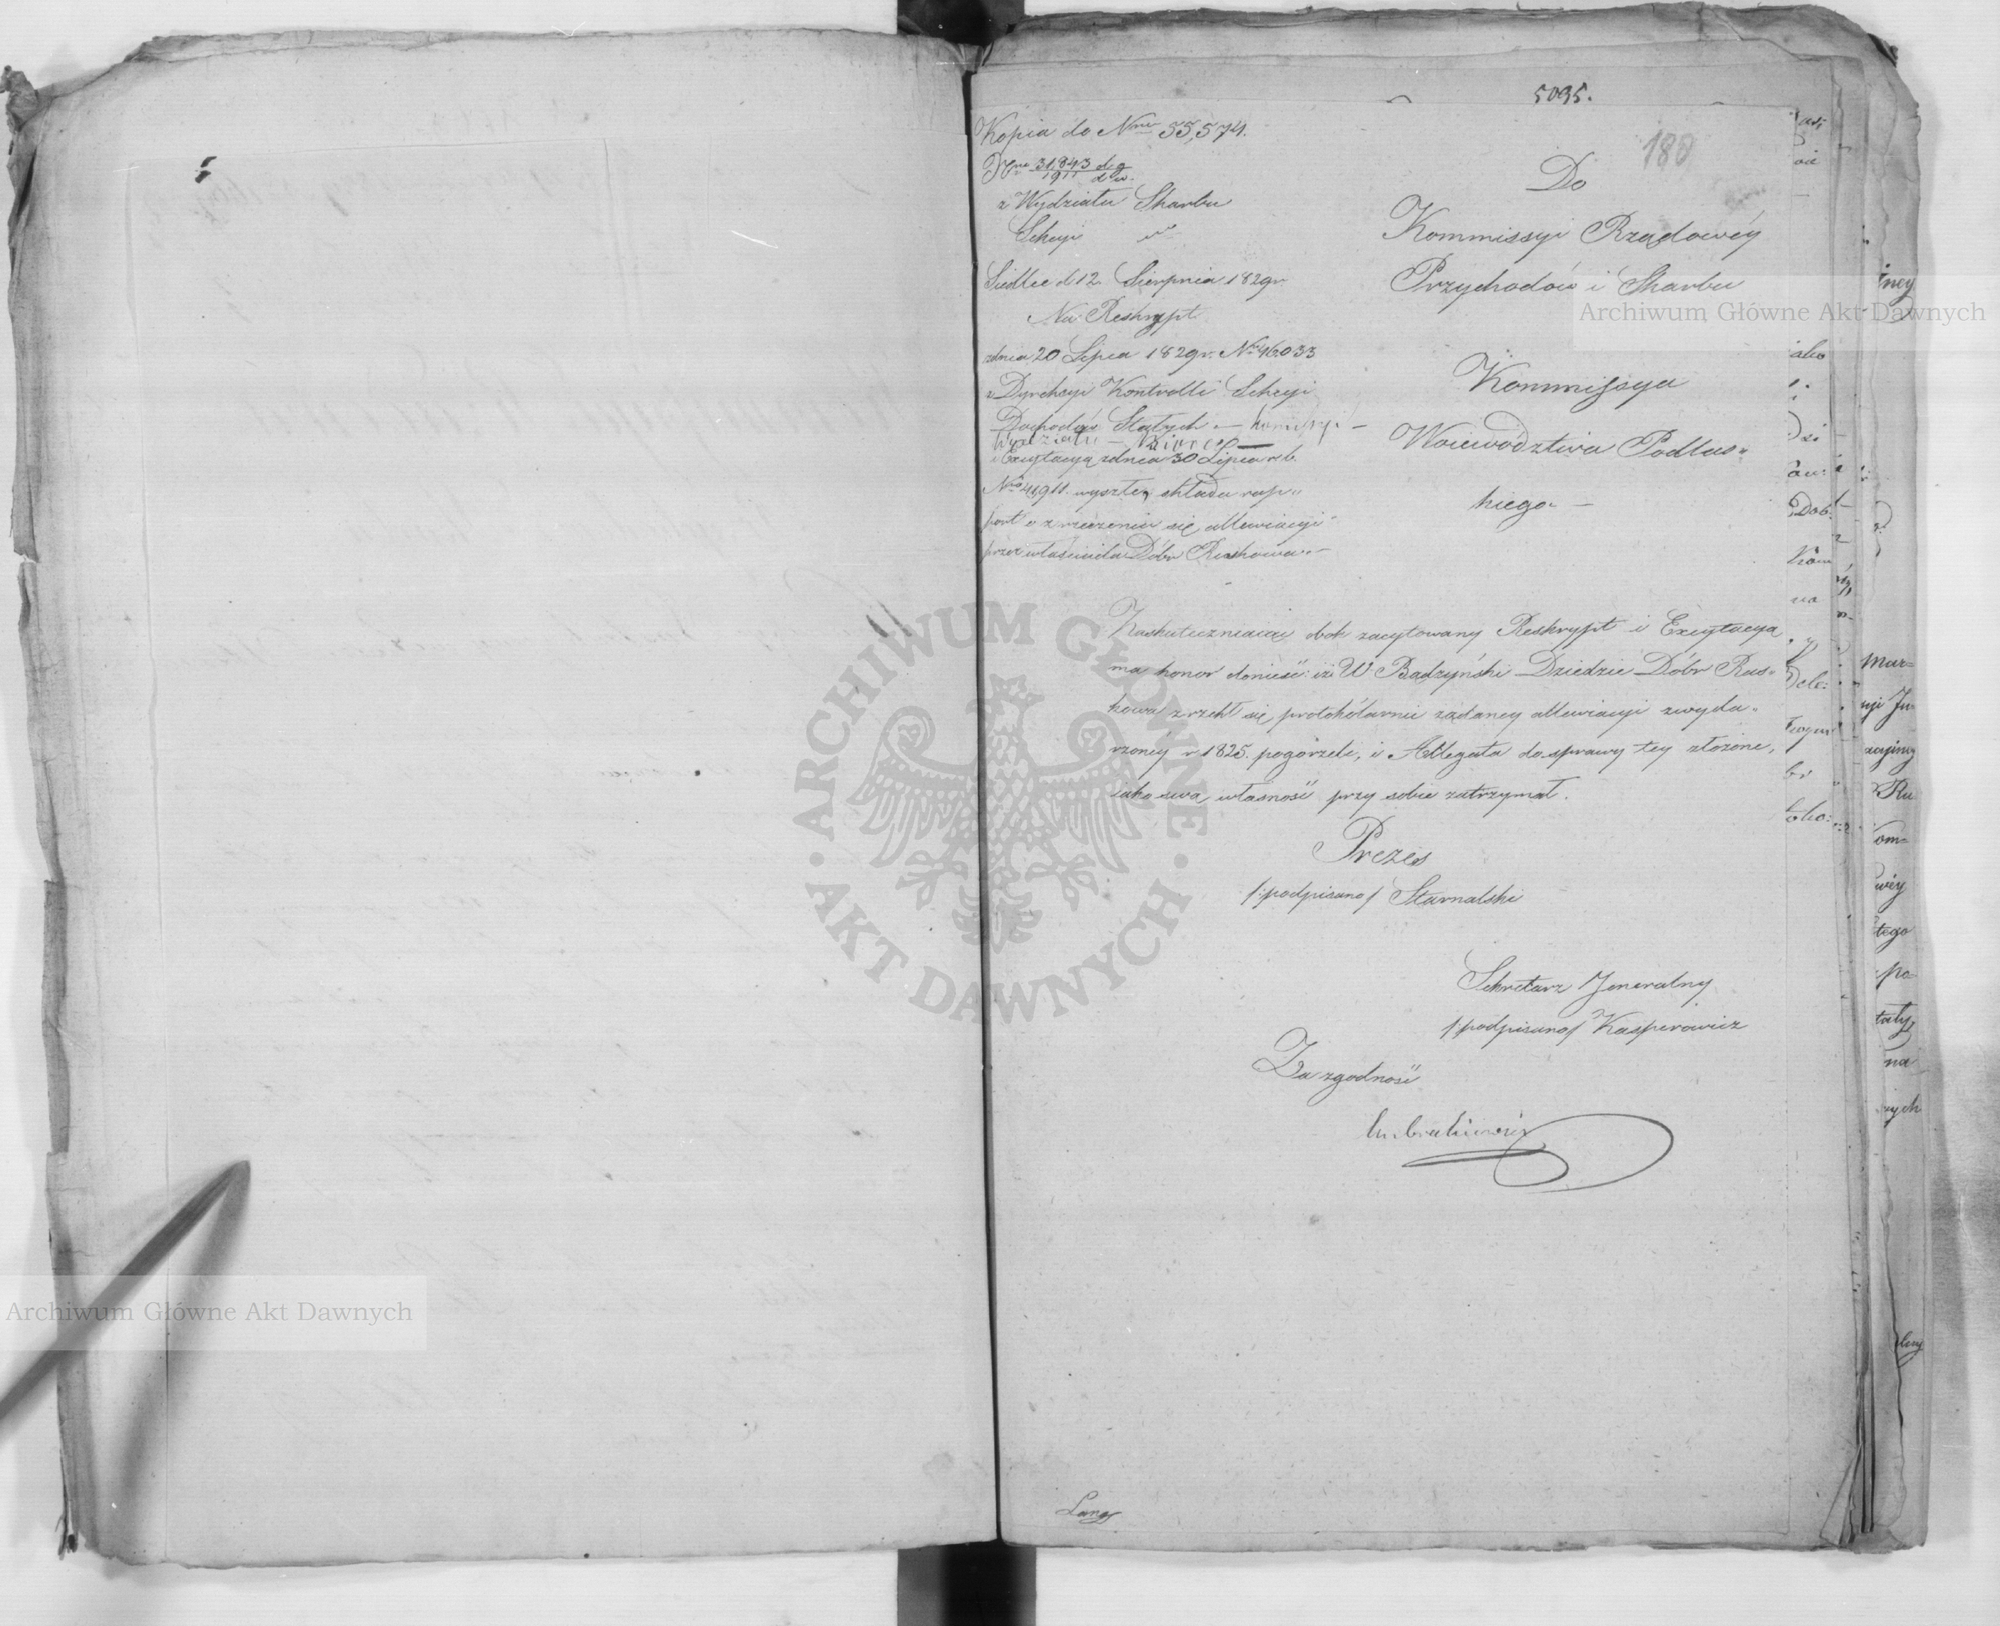 5095.
180
Kopia do Nru 55,574.
Nro 31,843 d g
1911 d w.
z Wydziału Skarbu
Sekcyi
Siedlce d 12 Sierpnia 1829 r
Na Reskrypt
z dnia 20 Lipca 1829 r. Nr 46033
z Dyrekcyi Kontrolli Sekcyi
Dochodów Stałych —
Wydziału —
i Excytacyą z dnia 30 Lipca r b.
Nro 41,911. wyszłą, składa rap=
port o zrzeczeniu się allewiacyi
przez właściciela Dóbr Ruskowa. —
Do
Kommissyi Rządowéy
Przychodów i Skarbu
Kommissya
Woiewództwa Podlas=
kiego. —
Uskuteczniaiąc obok zacytowany Reskrypt i Excytacyą
ma honor donieść: iż W Badzyński Dziedzic Dóbr Rus=
kowa zrzekł się protokólarnie żądaney allewiacyi z wyda=
rzonéy w 1825. pogorzeli, i Allegata do sprawy tey złożone,
iako swą własność przy sobie zatrzymał.
Prezes
/:podpisano/ Starnalski
Sekretarz Jeneralny
/:podpisano/ Kasperowicz
Za zgodność
Lang
Archiwum Główne Akt Dawnych
Archiwum Główne Akt Dawnych
ARCHIWUM GŁÓWNE · AKT DAWNYCH ·